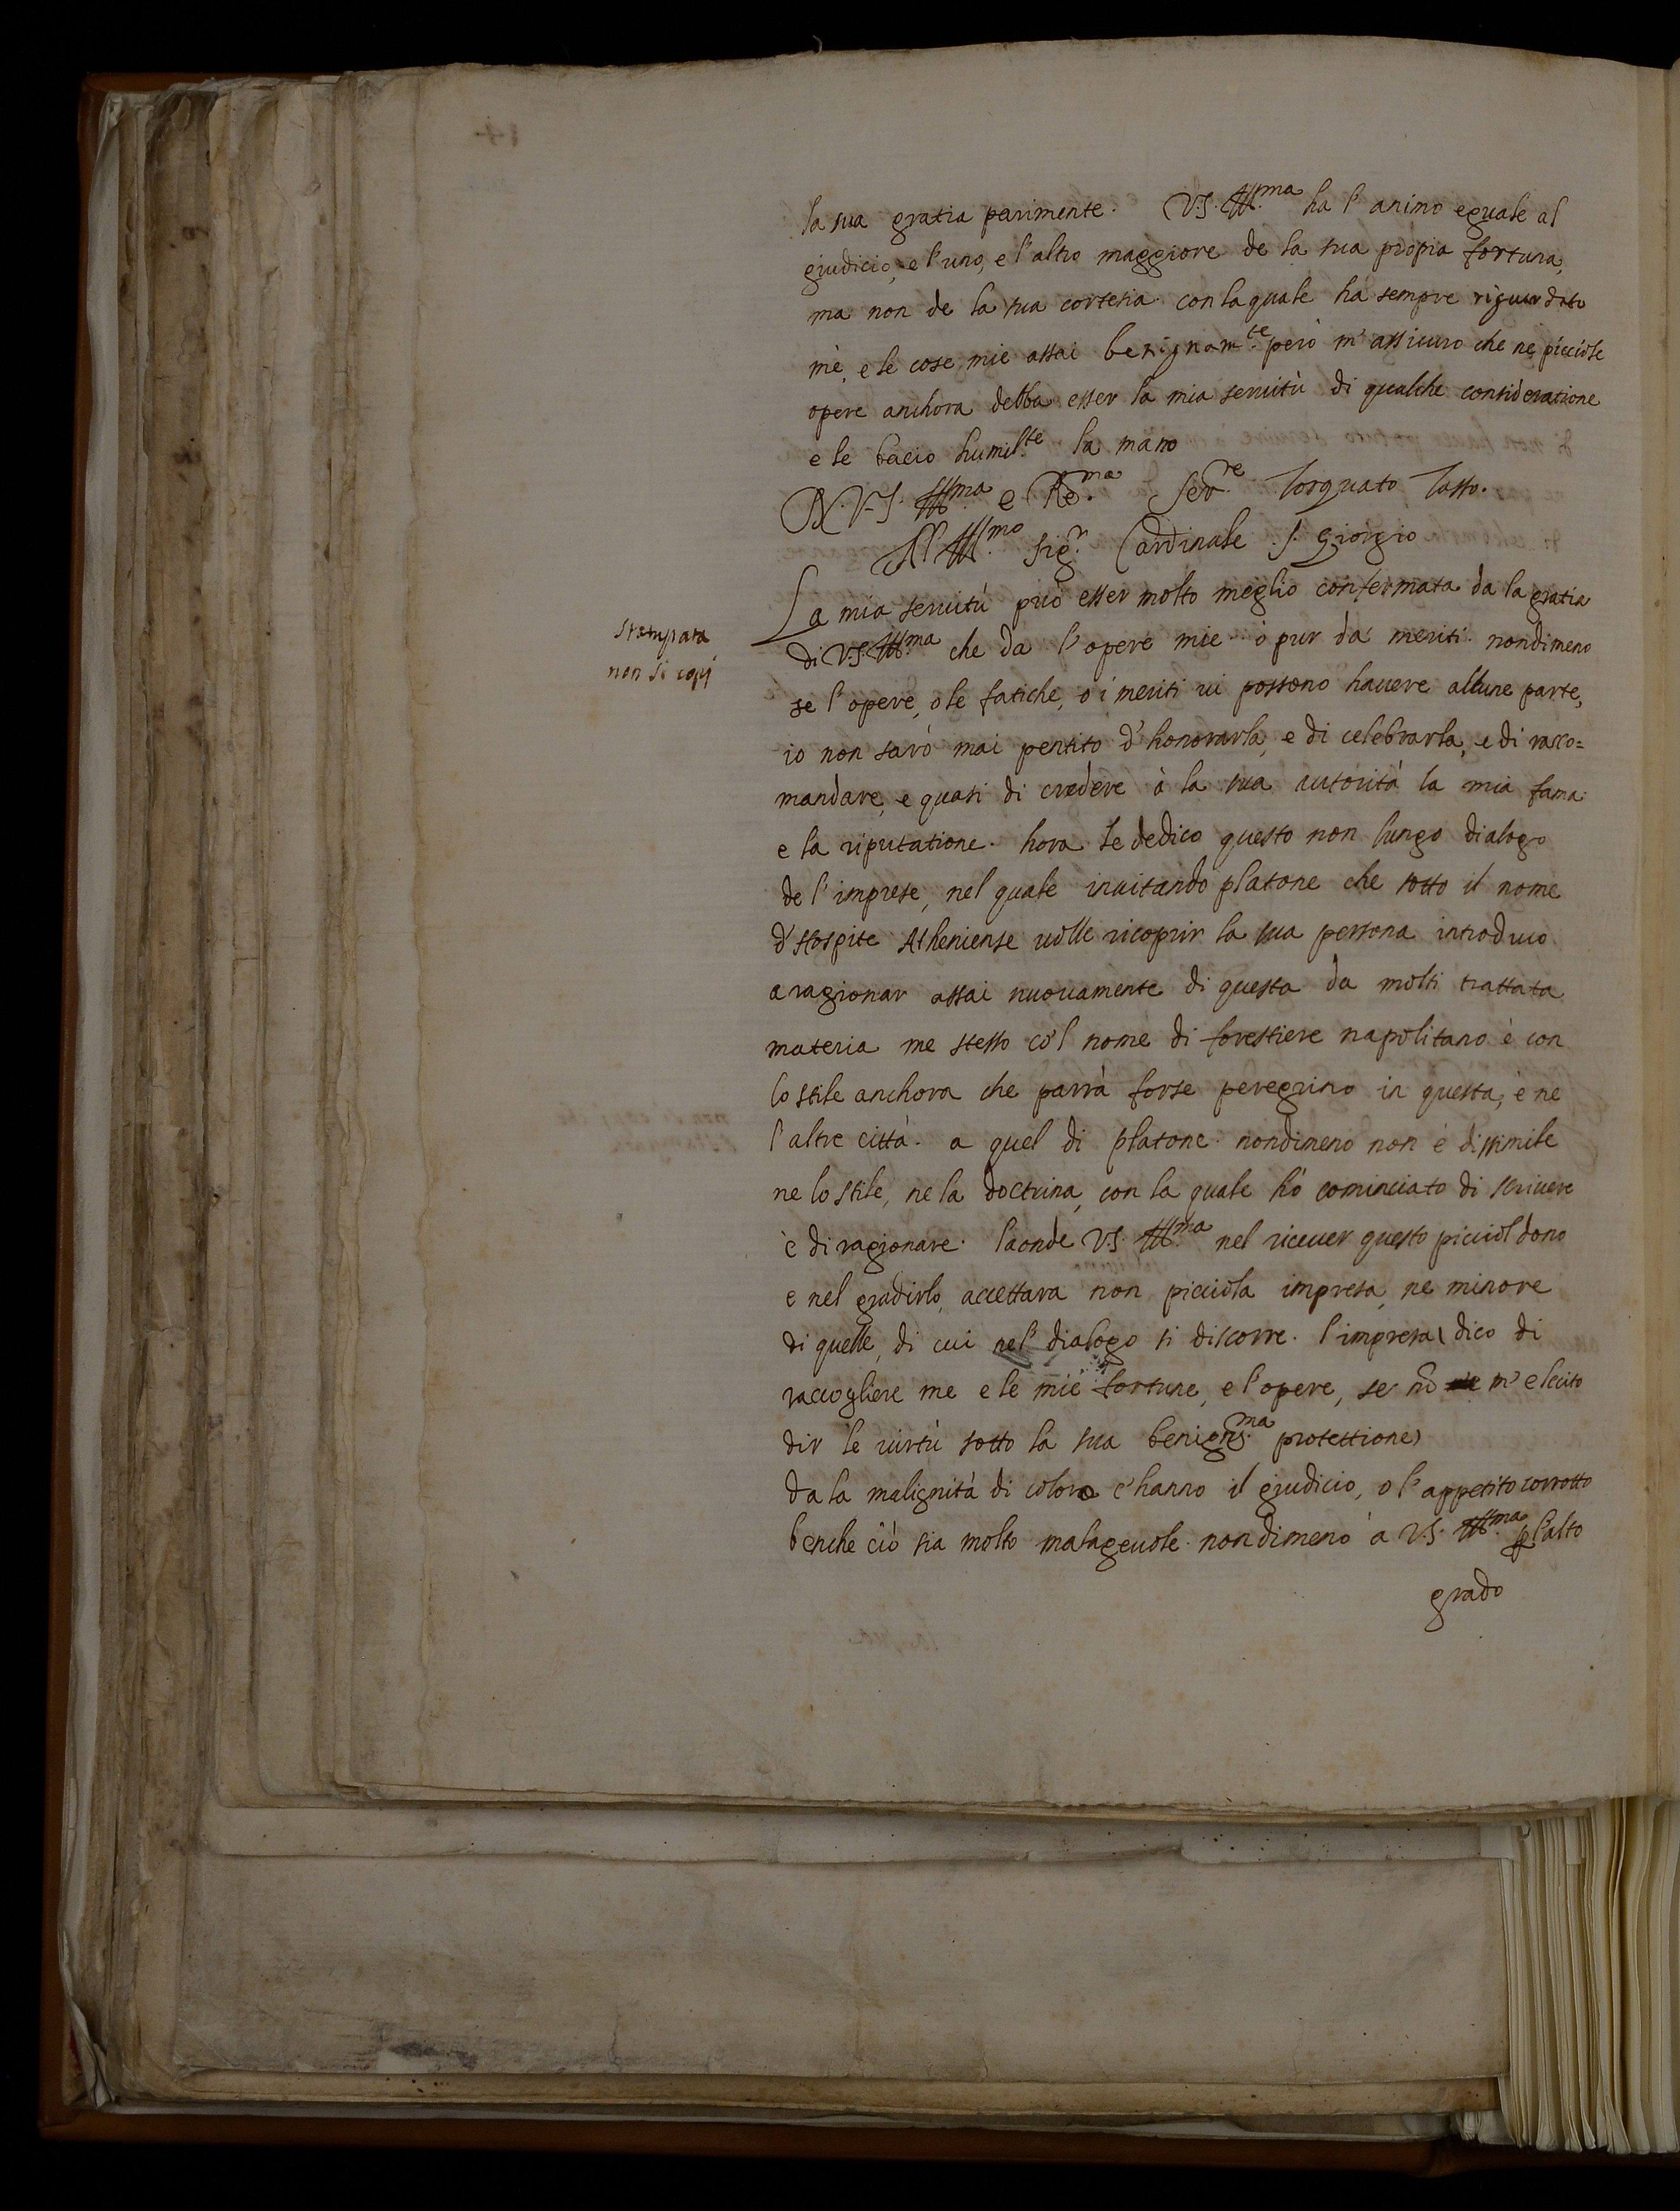 la sua gratia parimente. V.S. Ill.ma ha l'animo eguale al
giudicio, e l'uno, e l'altro maggiore de la sua propia fortuna,
ma non de la sua cortesia. con la quale ha sempre riguardato
mè, e le cose mie assai benignam.te però m'assicuro che ne picciole
opere anchora debba esser la mia seruitù di qualche consideratione
e le bacio humil.te la mano
D. V.S. Ill.ma e Re.ma Ser.re Torquato Tasso.
All' Ill.mo Sig.r Cardinale S. Giorgio
La mia seruitù può esser molto meglio confermata da la gratia
stampata
non si copi
di V.S. Ill.ma che da l'opere mie ò pur da meriti. nondimeno
se l'opere, o le fatiche, o i meriti ui possono hauere alcune parte,
io non sarò mai pentito d'honorarla, e di celebrarla, e di racco=
mandare, e quasi di credere à la sua autorità la mia fama
e la riputatione. hora le dedico questo non lungo dialogo
de l'imprese, nel quale imitando platone che sotto il nome
d'Hospite Atheniense uolle ricoprir la sua persona introduco
a ragionar assai nuouamente di questa da molti trattata
materia me stesso co'l nome di forestiere napolitano è con
lo stile anchora che parrà forse peregrino in questa, è ne
l'altre città. a quel di platone. nondimeno non è dissimile
ne lo stile, ne la doctrina, con la quale hò cominciato di scriuere
è di ragionare. laonde V.S. Ill.ma nel riceuer questo picciol dono
e nel gradirlo, accettara non picciola impresa, ne minore
di quelle, di cui nel dialogo si discorre. l'impresa (dico di
raccogliere me e le mie fortune, e l'opere, se nō m'e lecito
dir le uirtù sotto la sua benigniss.ma protettione)
da la malignità di coloro c'hanno il giudicio, o l'appetito corrotto
benche ciò sia molto malageuole. nondimeno à V.S. Ill.ma p l'alto
grado